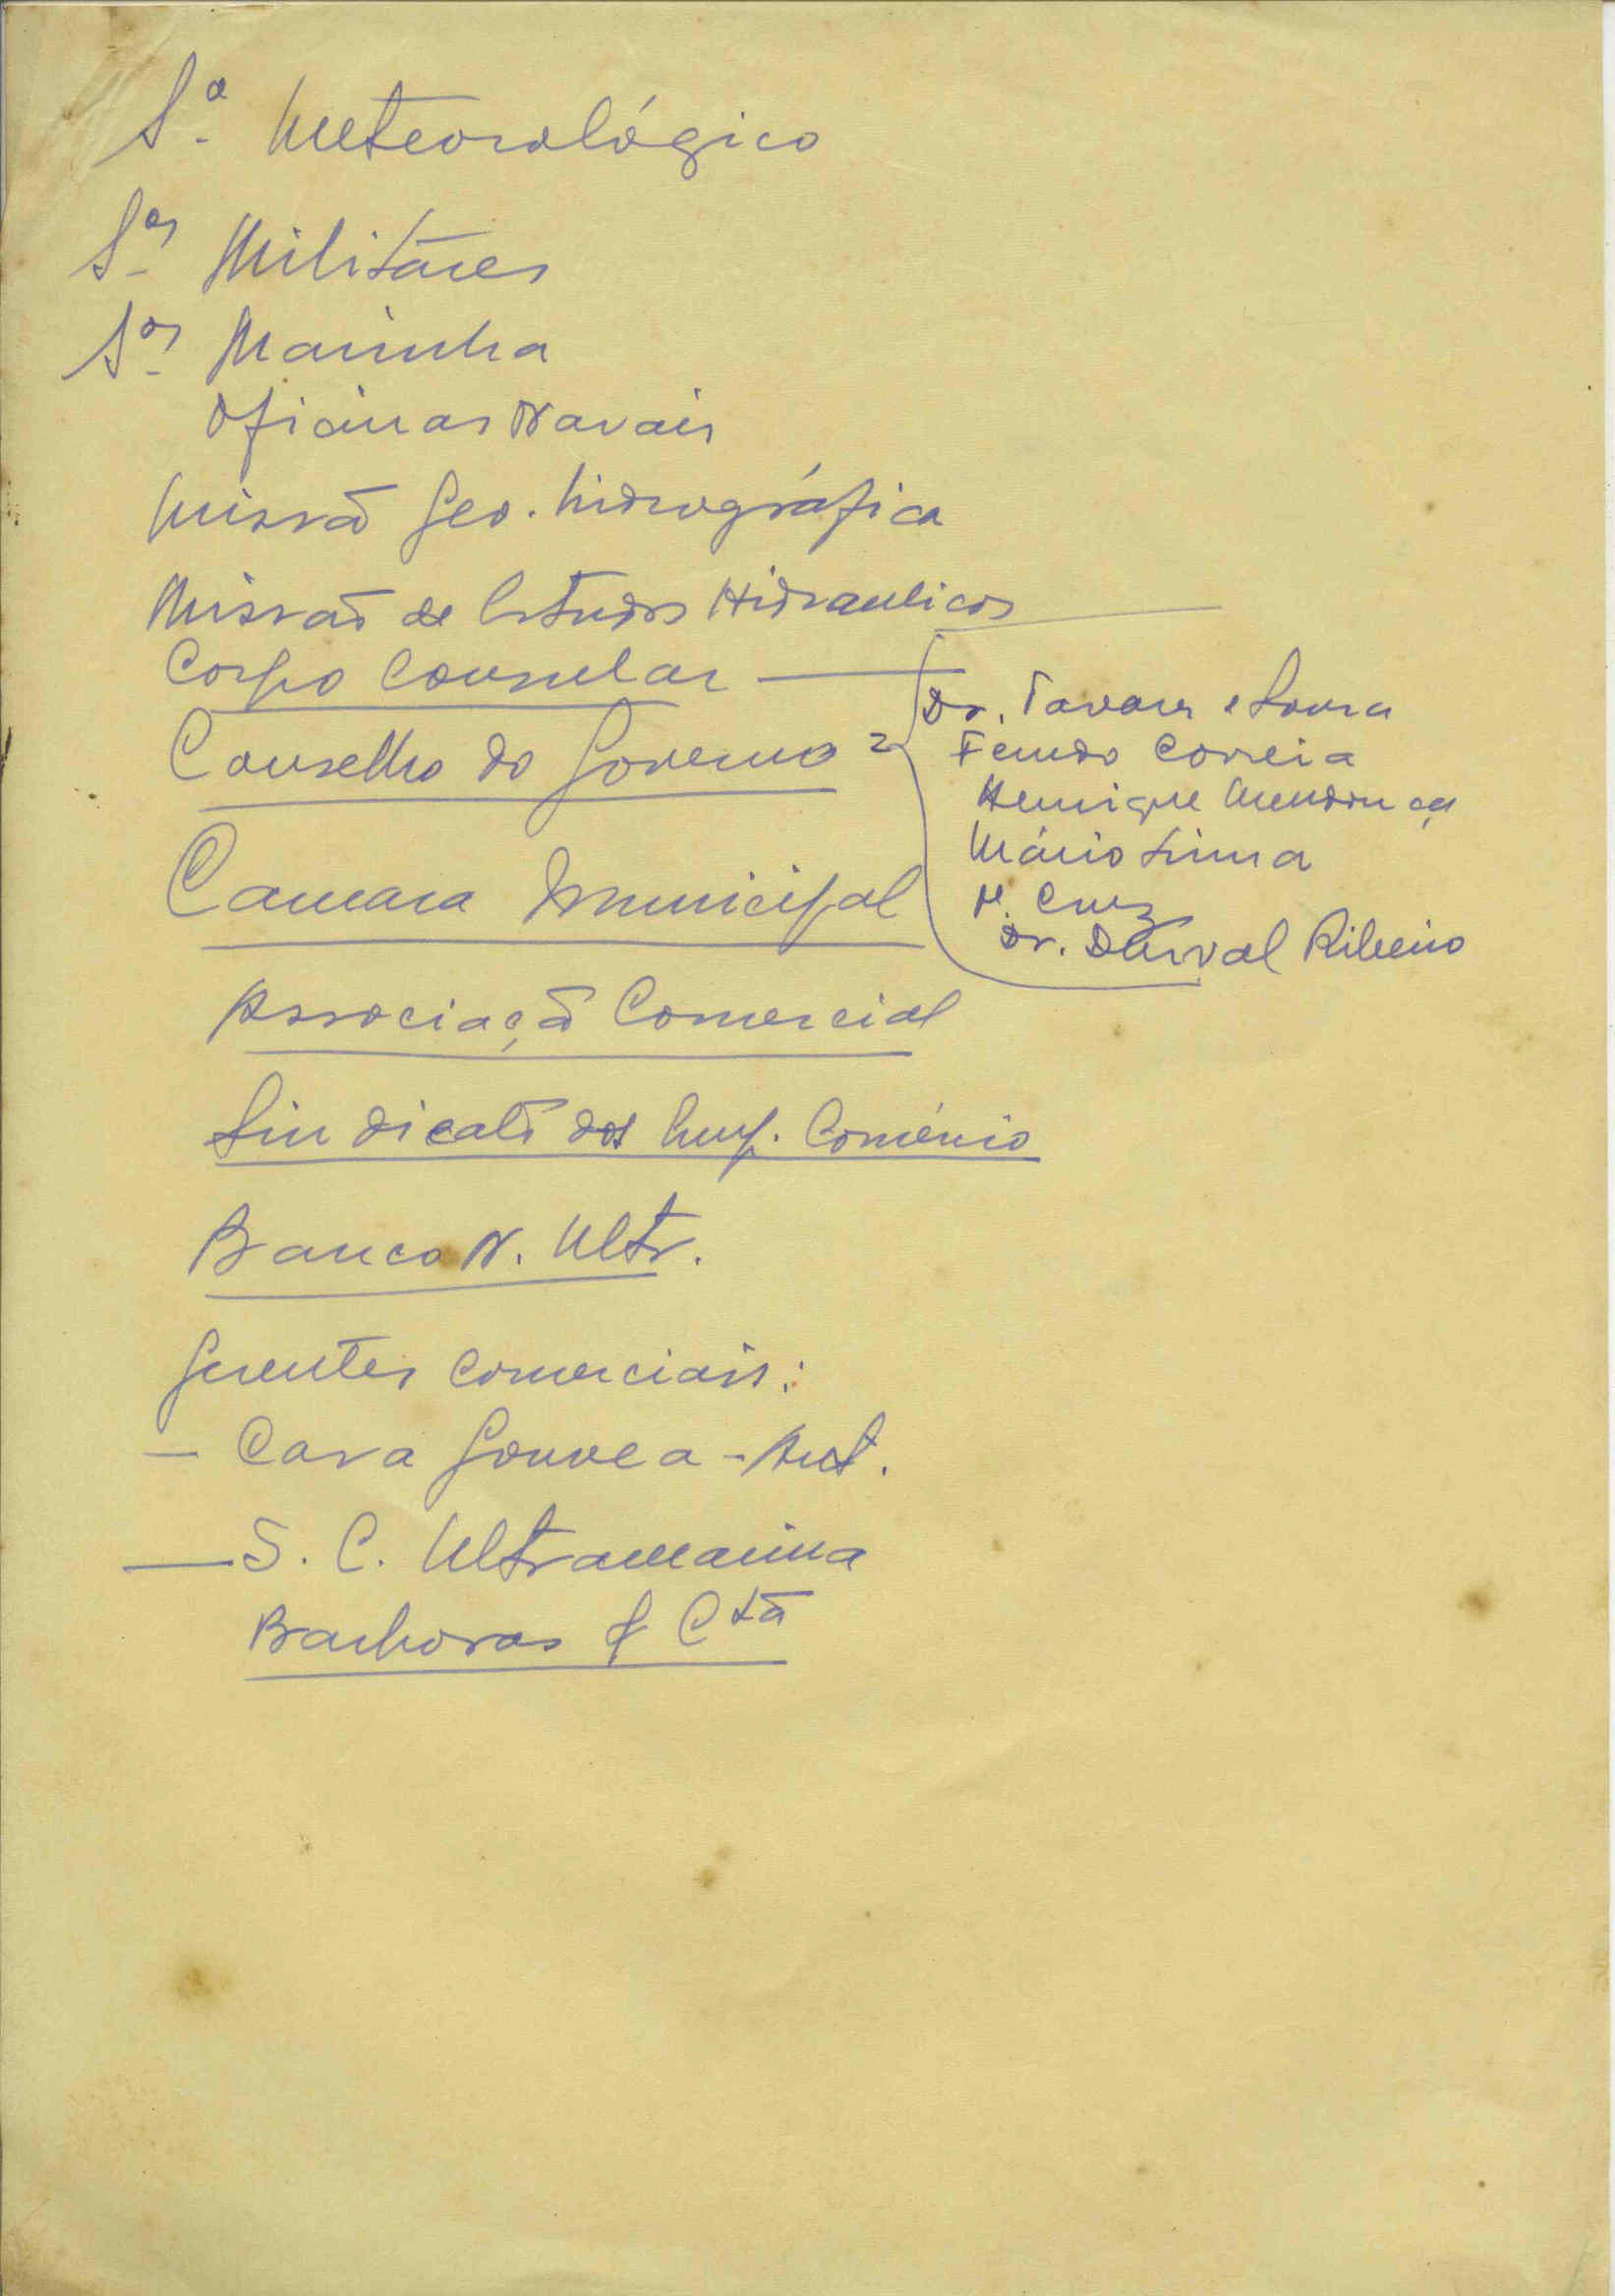 Sº Meteorológico
Sos Militares
Sos Marinha
Oficinas Navais
Missão Geo. hidrográfica
Missão de Estudos Hidraulicos
Corpo Consular
Conselho do Governo
Dr. Tavares e Sousa
Ferndo Correia
Henrique Mendonça
Mário Lima
M. Cruz
Dr. Durval Ribeiro
Camara Municipal
Associação Comercial
Sindicato dos Emp. Comércio
Banco N. Ultr.
Gerentes comerciais:
— Casa Gouvea - Ant.
— S. C. Ultramarina
Barbosas & Cta